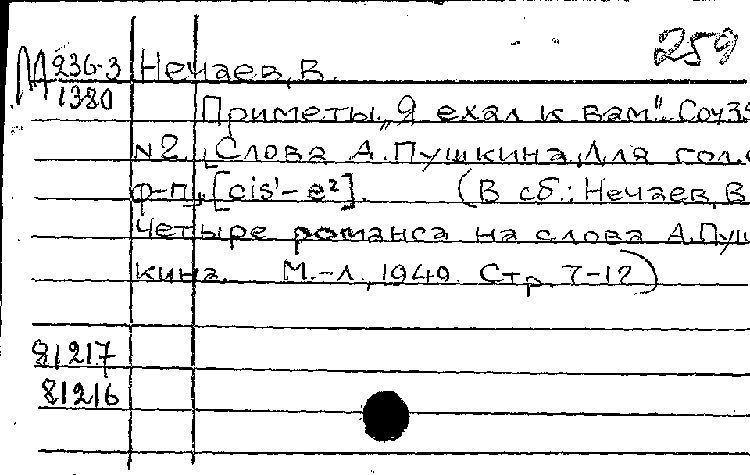 259
М 936-3 Нечаев, В.
1380
Приметы. „Я ехал к вам". Соч. 35
N2. [Слова А. Пушкина. Для гол. с
ф-п]. [cis'-e²]. (В сб.: Нечаев, В
Четыре романса на слова А. Пуш
кина. М.-Л., 1949. Стр. 7-12)
81217
81216